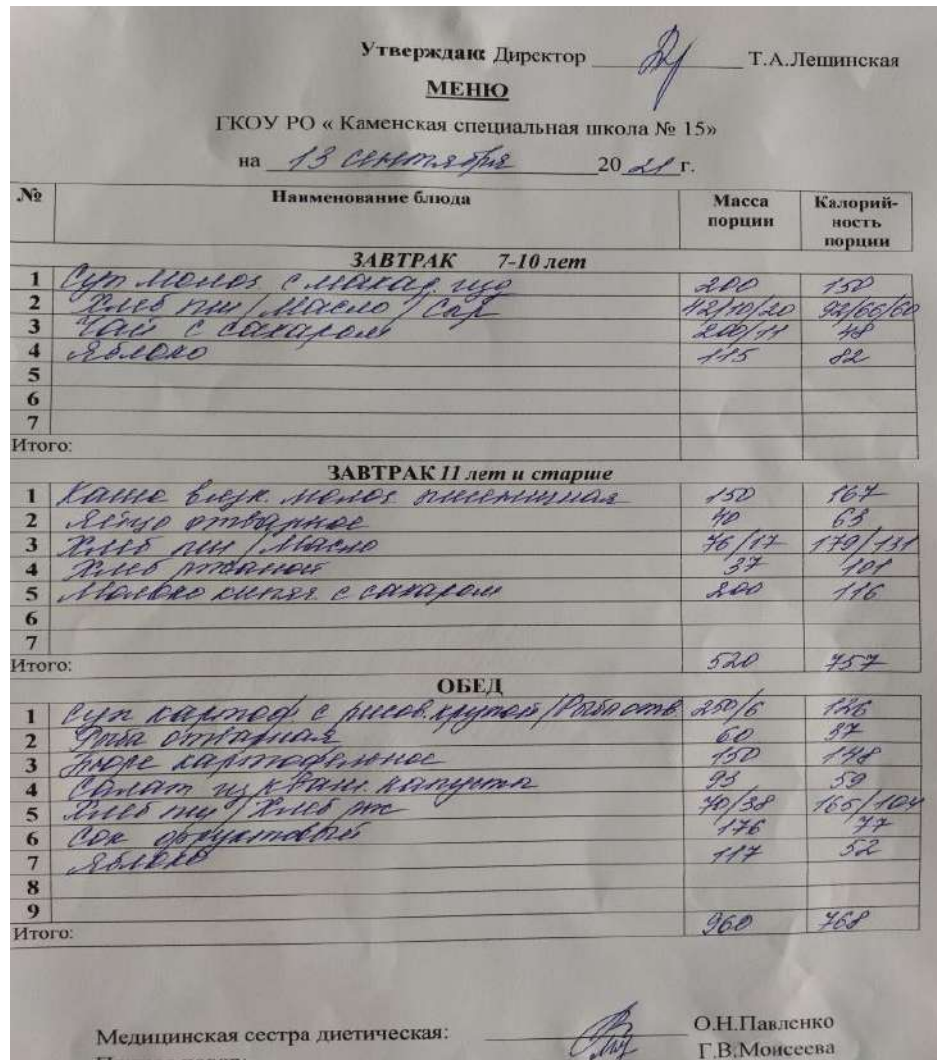 Утверждаю: Директор Т.А.Лещинская
МЕНЮ
ГКОУ РО « Каменская специальная школа № 15»
на 13 сентября 20 21 г.
№ Наименование блюда Масса порции Калорий-ность порции
ЗАВТРАК 7-10 лет
1 Суп молоч с макар. изд 200 150
2 Хлеб пш/Масло/Сыр 42/10/20 92/66/60
3 Чай с сахаром 200/11 48
4 Яблоко 115 82
5
6
7
Итого:
ЗАВТРАК 11 лет и старше
1 Каша вязк. молоч пшеничная 150 167
2 Яйцо отварное 40 63
3 Хлеб пш/Масло 76/17 179/131
4 Хлеб ржаной 37 101
5 Молоко кипяч. с сахаром 200 116
6
7
Итого: 520 757
ОБЕД
1 Суп картоф. с рисов. крупой/Рыба отв 250/6 126
2 Рыба отварная 60 37
3 Пюре картофельное 150 148
4 Салат из кваш. капусты 93 59
5 Хлеб пш/Хлеб рж 70/38 165/104
6 Сок фруктовый 176 77
7 Яблоко 117 52
8
9
Итого: 960 768
Медицинская сестра диетическая: О.Н.Павленко
Г.В.Моисеева